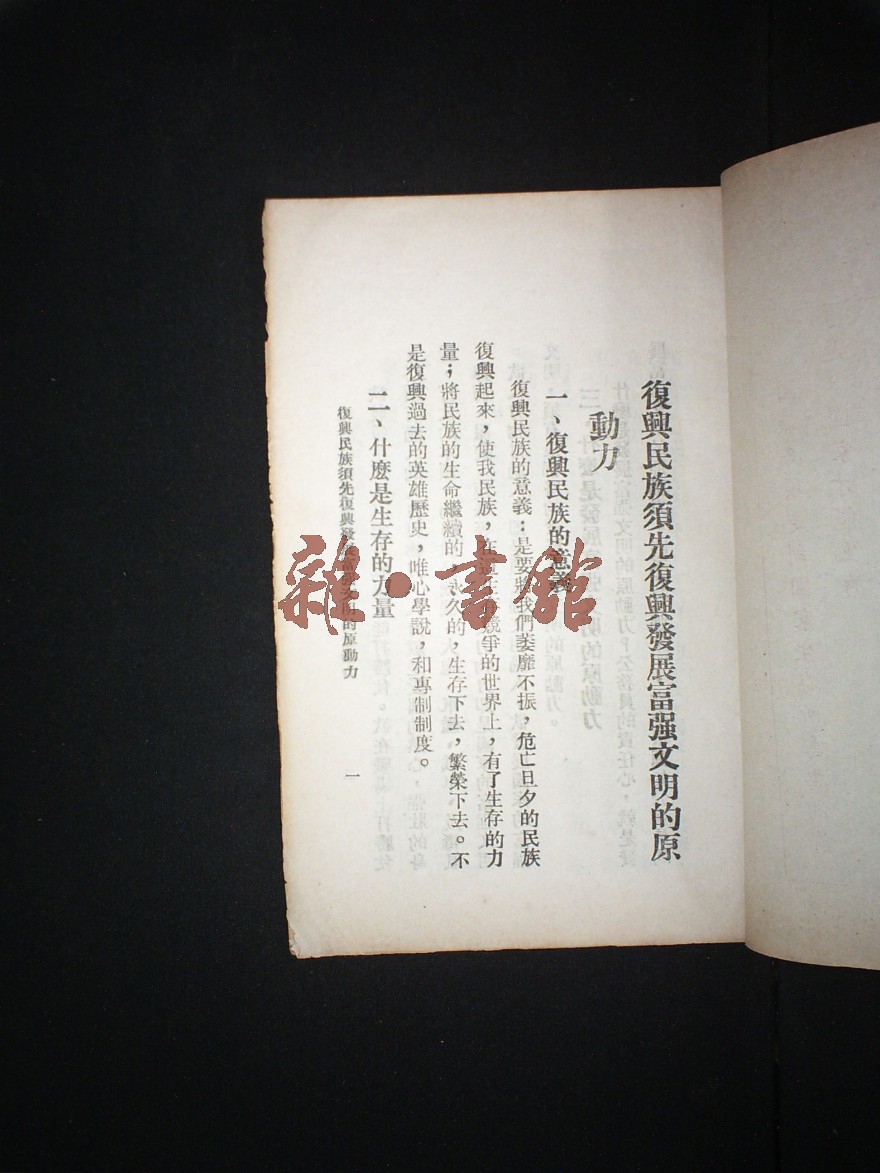 復興民族須先復興發展富强文明的原
動力
一、復興民族的意義
復興民族的意義：是要將我們萎靡不振，危亡旦夕的民族
復興起來，使我民族，在這生存競爭的世界上，有了生存的力
量；將民族的生命繼續的，永久的，生存下去，繁榮下去。不
是復興過去的英雄歷史，唯心學說，和專制制度。
二、什麼是生存的力量
復興民族須先復興發展富强文明的原動力
一
雜·書館